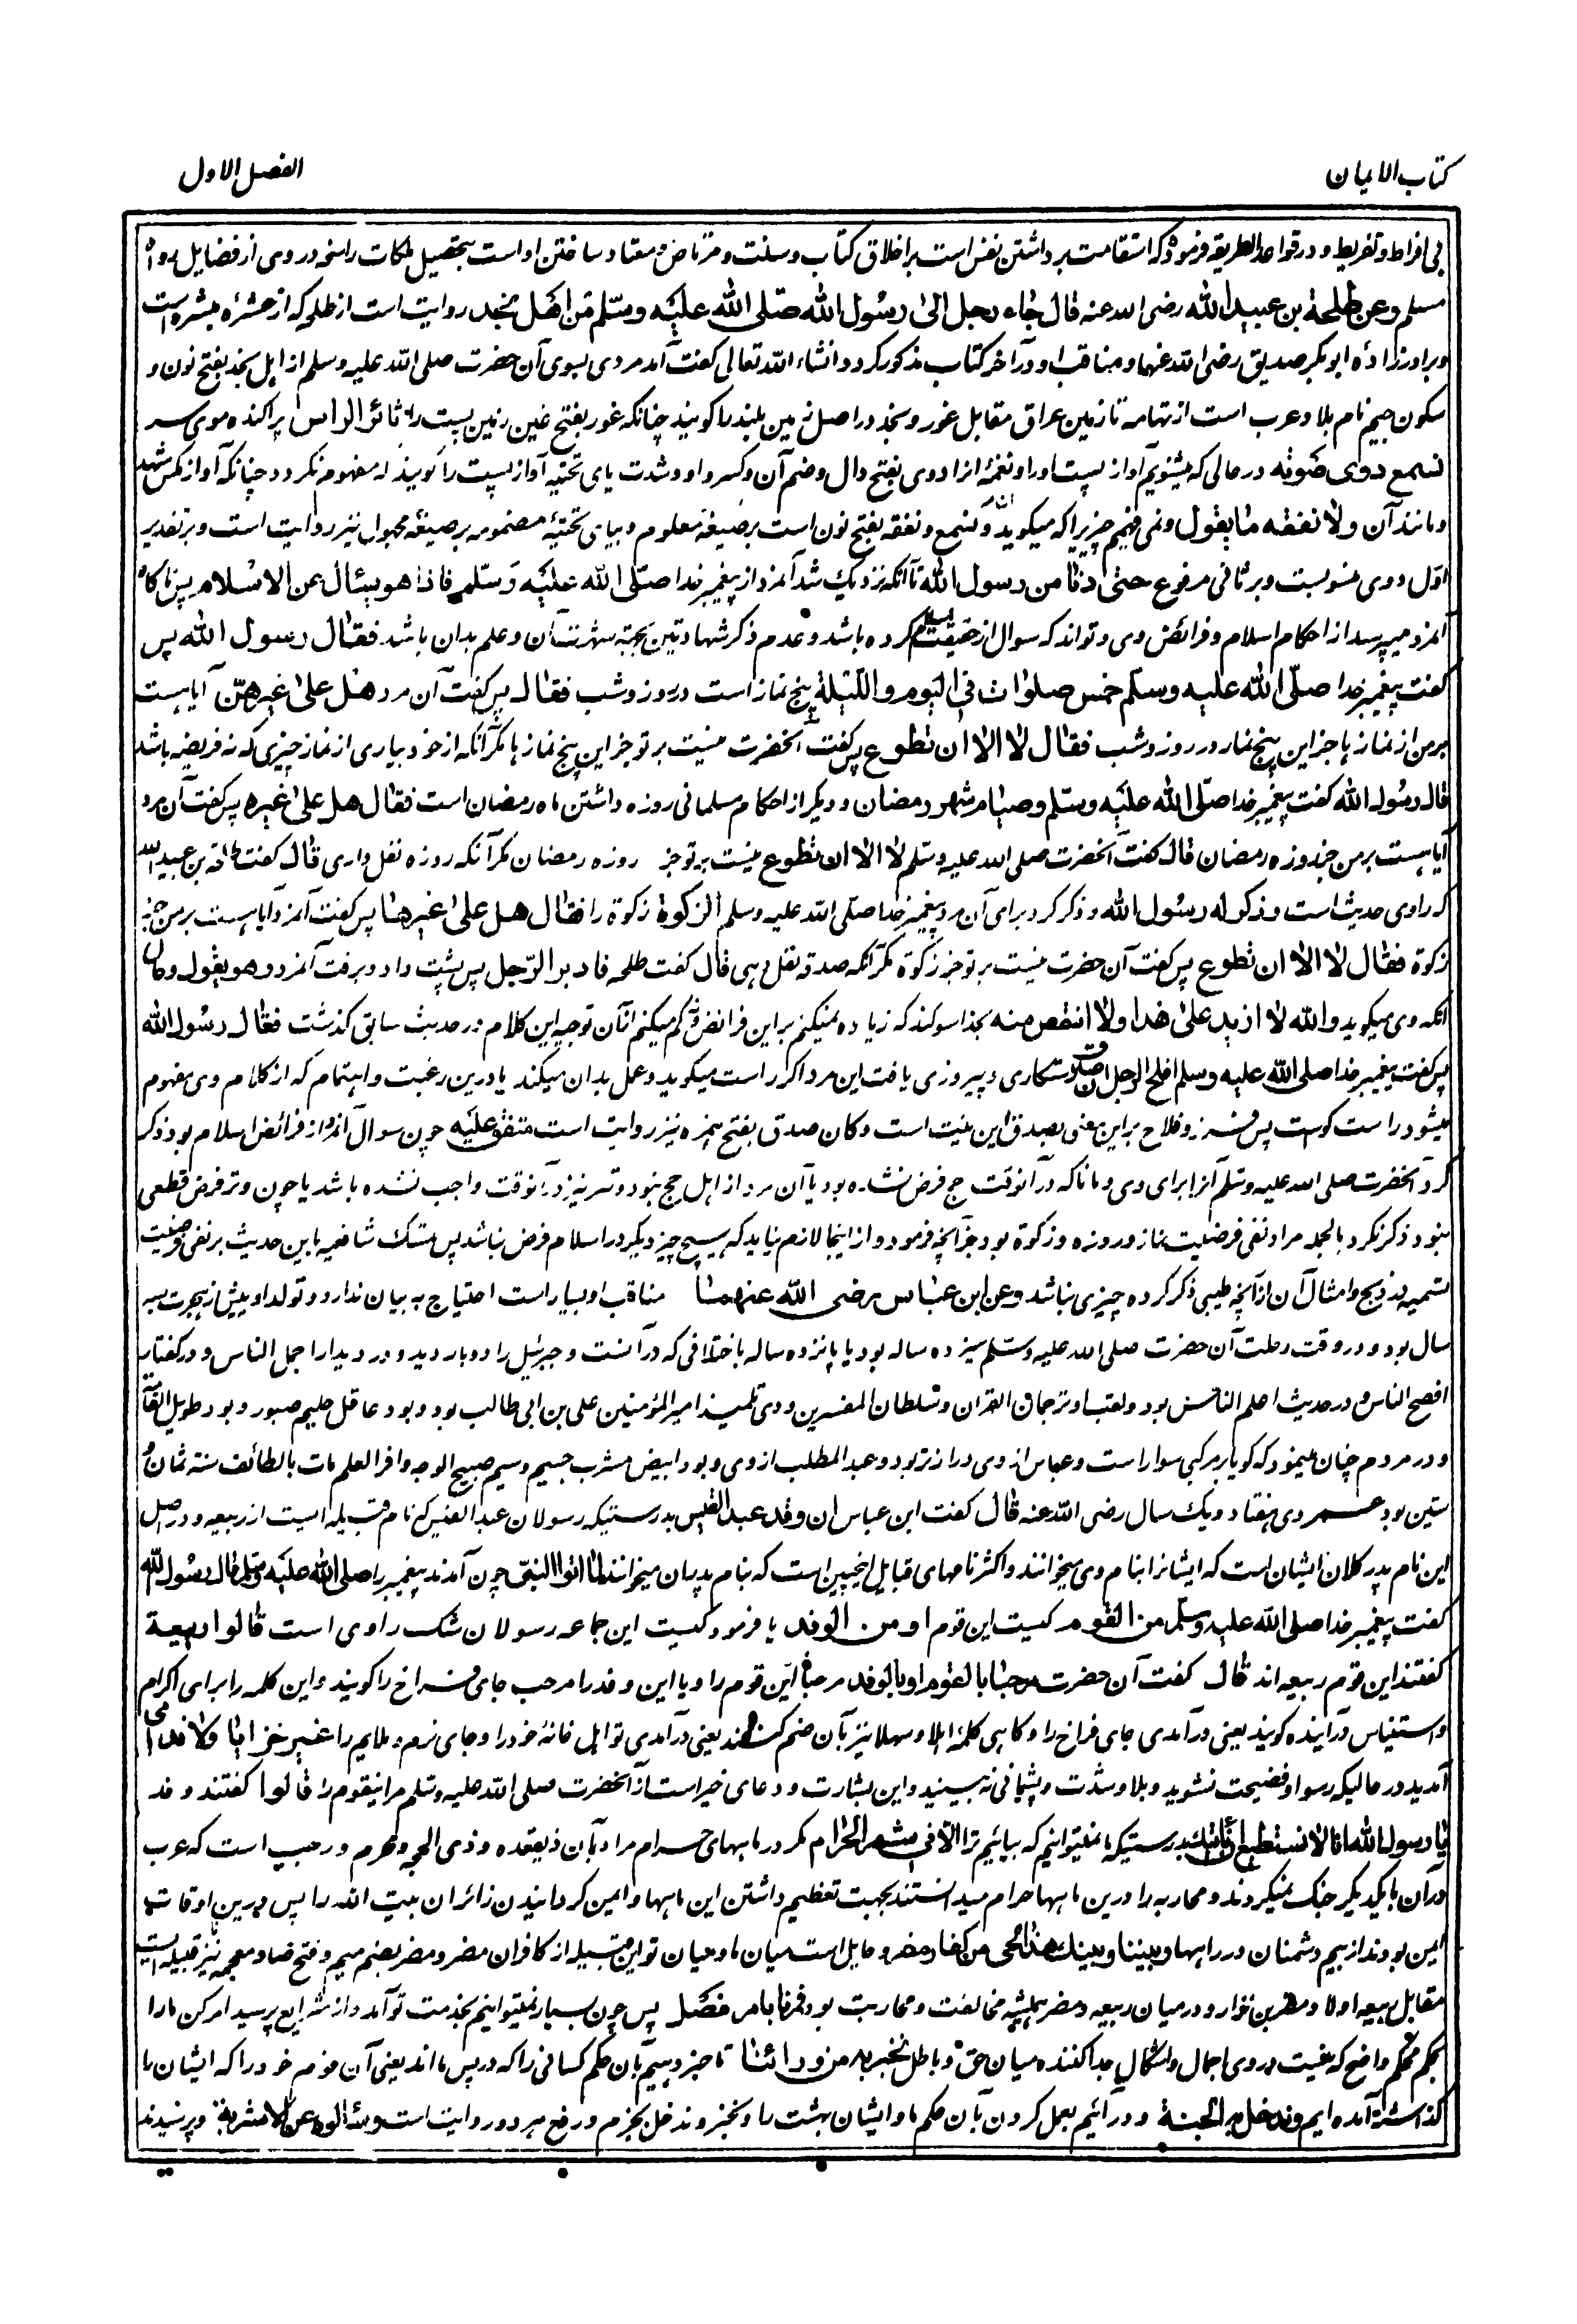 كتاب الايمان
الفصل الاول
بى افراط و تفريط و در قواعد الطريقه فرموده كه استقامت برداشتن نفس است بر اخلاق كتاب و سنت و مرتاض و معتاد ساختن او است بتحصيل ملكات راسخه در وى از فضايل رواه
مسلم وعن طلحة بن عبيد الله رضى الله عنه قال جاء رجل الى رسول الله صلى الله عليه وسلم من اهل نجد روايت است از طلحه كه از عشرهٔ مبشره است
و برادرزادهٔ ابو بكر صديق رضى الله عنهما و مناقب او در آخر كتاب مذكور گردد انشاء الله تعالى گفت آمد مردى بسوى آن حضرت صلى الله عليه وسلم از اهل نجد بفتح نون و
سكون جيم نام بلاد عرب است از تهامه تا زمين عراق مقابل غور و نجد در اصل زمين بلند را گويند چنانكه غور بفتح غين زمين پست را ثائر الراس پراكنده موى سر
نسمع دوى صوته در حالى كه ميشنويم آواز پست او را و نغمهٔ او را دوى بفتح دال و ضم آن و كسر واو و شدت ياى تحتيه آواز پست را گويند كه مفهوم نگردد چنانكه آواز مگس شهد
و مانند آن ولا نفقه ما يقول و نمى فهميم چيزيرا كه ميگويد آن و نسمع و نفقه بفتح نون است بر صيغهٔ معلوم و بياى تحتيهٔ مضمومه بر صيغهٔ مجهول نيز روايت است و بر تقدير
اول دوى منسوبست و بر ثانى مرفوع حتى دنا من رسول الله تا آنكه نزديك شد آنمرد از پيغمبر خدا صلى الله عليه وسلم فاذا هو يسأل عن الاسلام پس ناگاه
آنمرد ميپرسد از احكام اسلام و فرائض وى و تواند كه سوال از حقيقت اسلام كرده باشد و عدم ذكر شهادتين بجهة شهرت آن و علم بدان باشد فقال رسول الله پس
گفت پيغمبر خدا صلى الله عليه وسلم خمس صلوات فى اليوم والليلة پنج نماز است در روز و شب فقال پس گفت آن مرد هل على غيرهن آيا هست
بر من از نماز ها جز اين پنج نماز در روز و شب فقال لا الا ان تطوع پس گفت آنحضرت نيست بر تو جز اين پنج نماز ها مگر آنكه از خود بيارى از نماز چيزى كه نه فريضه باشد
قال رسول الله گفت پيغمبر خدا صلى الله عليه وسلم وصيام شهر رمضان و ديگر از احكام مسلمانى روزه داشتن ماه رمضان است فقال هل على غيره پس گفت آن مرد
آيا هست بر من جز روزه رمضان قال گفت آنحضرت صلى الله عليه وسلم لا الا ان تطوع نيست بر تو جز روزه رمضان مگر آنكه روزه نفل دارى قال گفت طلحة بن عبيد الله
كه راوى حديث است وذكر له رسول الله و ذكر كرد براى آن مرد پيغمبر خدا صلى الله عليه وسلم الزكوة زكوة را فقال هل على غيرها پس گفت آنمرد آيا هست بر من جز
زكوة فقال لا الا ان تطوع پس گفت آن حضرت نيست بر تو جز زكوة مگر آنكه صدقه نفل دهى قال گفت طلحه فادبر الرجل پس پشت داد و برفت آنمرد وهو يقول و حال
آنكه وى ميگويد والله لا ازيد على هذا ولا انقص منه بخدا سوگند كه زياده نميكنم بر اين فرائض و كم نميكنم از آن توجيه اين كلام در حديث سابق گذشت فقال رسول الله
پس گفت پيغمبر خدا صلى الله عليه وسلم افلح الرجل ان صدق رستگارى و پيروزى يافت اين مرد اگر راست ميگويد و عمل بدان ميكند يا درين رغبت و اهتمام كه از كلام وى مفهوم
ميشود راست گوست پس فوز و فلاح بر اين معنى بصدق اين نيت است وكان صدق بفتح همزه نيز روايت است متفق عليه چون سوال آنمرد از فرائض اسلام بود ذكر
كرد آنحضرت صلى الله عليه وسلم آنرا براى وى و مانا كه در آنوقت حج فرض نشده بود يا آن مرد از اهل حج نبود و وتر نيز در آنوقت واجب نشده باشد يا چون وتر فرض قطعى
نبود ذكر نكرد بالجمله مراد نفى فرضيت نماز و روزه و زكوة بود جز آنچه فرمود و از اينجا لازم نيايد كه هيچ چيز ديگر در اسلام فرض نباشد پس تمسك شافعيه باين حديث بر نفى فرضيت
تسميه در ذبح و امثال آن از آنچه طيبى ذكر كرده چيزى نباشد وعن ابن عباس رضى الله عنهما مناقب او بسيار است احتياج به بيان ندارد و تولد او پيش از هجرت بسه
سال بود و در وقت رحلت آن حضرت صلى الله عليه وسلم سيزده ساله بود يا پانزده ساله با ختلافى كه در آنست و جبرئيل را دو بار ديد و در ديدار اجمل الناس و در گفتار
افصح الناس و در حديث اعلم الناس بود و لقب او ترجمان القران و سلطان المفسرين و وى تلميذ امير المؤمنين على بن ابى طالب بود و بود عاقل حليم صبور و بود طويل القامة
و در مردم چنان مينمود كه گويا بر مركبى سوار است و عباس از وى دراز تر بود و عبد المطلب از وى و بود ابيض مشرب جسيم وسيم صبيح الوجه وافر العلم مات بالطائف سنه ثمان و
ستين بود عمر وى هفتاد و يك سال رضى الله عنه قال گفت ابن عباس ان وفد عبد القيس بدرستيكه رسولان عبد القيس كه نام قبيله است از ربيعه و در اصل
اين نام پدر كلان ايشان است كه ايشانرا بنام وى ميخوانند و اكثر نامهاى قبايل اينچنين است كه بنام پدران ميخوانند لما اتوا النبى چون آمدند پيغمبر را صلى الله عليه وسلم قال رسول الله
گفت پيغمبر خدا صلى الله عليه وسلم من القوم كيست اين قوم او من الوفد يا فرمود كيست اين جماعه رسولان شك راوى است قالوا ربيعة
گفتند اين قوم ربيعه اند قال گفت آن حضرت مرحبا بالقوم او بالوفد مرحبا اين قوم را و يا اين وفد را مرحب جاى فراخ را گويند و اين كلمه را براى اكرام
و استيناس در آينده گويند يعنى در آمدى جاى فراخ را و كاهى كلمهٔ اهلا و سهلا نيز بآن ضم كنند يعنى در آمدى تو اهل خانهٔ خود را و جاى نرم و ملايم را غير خزايا ولا ندامى
آمديد در حاليكه رسوا و فضيحت نشويد و بلا و شدت و پشيمانى نه بينيد و اين بشارت و دعاى خير است از آنحضرت صلى الله عليه وسلم مر اينقوم را قالوا گفتند وفد
يا رسول الله انا لا نستطيع ان ناتيك بدرستيكه ما نميتوانيم كه بيائيم ترا الا فى الشهر الحرام مگر در ماههاى حرام مراد بآن ذيقعده و ذى الحجه و محرم و رجب است كه عرب
در آن با يكديگر جنگ نميكردند و محاربه را درين ماهها حرام ميدانستند بجهت تعظيم داشتن اين ماهها و امين گردانيدن زائران بيت الله را پس درين اوقات
ايمن بودند از بيم دشمنان در راهها وبيننا وبينك هذا الحى من كفار مضر و حايل است ميان ما و ميان تو اين قبيله از كافران مضر و مضر بضم ميم و فتح ضاد معجمه نيز قبيله ايست
مقابل ربيعه اولاد مضر بن نزار و در ميان ربيعه و مضر هميشه مخالفت و محاربت بود فمرنا بامر فصل پس چون بسيار نميتوانيم بخدمت تو آمد و از شرايع پرسيد امر كن ما را
بحكم محكم واضح كه نيست در وى اجمال و اشكال جدا كننده ميان حق و باطل نخبر به من ورائنا تا خبر دهيم بآن حكم كسانى را كه در پس ما اند يعنى آن قوم خود را كه ايشان را
گذاشته آمده ايم وندخل به الجنة و در آئيم بعمل كردن بآن حكم ما و ايشان بهشت را و نخبر و ندخل بجزم و رفع هر دو روايت است وسألوه عن الاشربة و پرسيدند